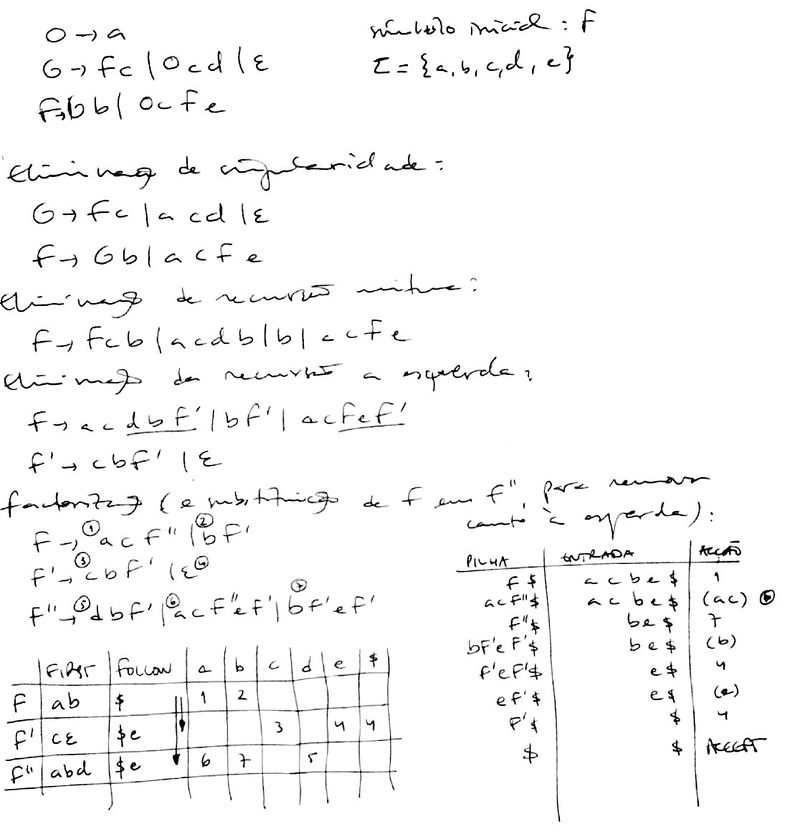 O → a
símbolo inicial : F
G → Fc | Ocd | ε
Σ = {a, b, c, d, e}
F → Gb | OcFe
Eliminação de singularidade :
G → Fc | acd | ε
F → Gb | acFe
Eliminação de recursão mútua :
F → Fcb | acdb | b | acFe
Eliminação da recursão à esquerda :
F → acdbF' | bF' | acFeF'
F' → cbF' | ε
factorização (e substituição de F em F'', para remover
canto à esquerda) :
F → ① acF'' | ② bF'
F' → ③ cbF' | ε ④
F'' → ⑤ dbF' | ⑥ acF''eF' | ⑦ bF'eF'
FIRST FOLLOW a b c d e $
F ab $ 1 2
F' cε $e 3 4 4
F'' abd $e 6 7 5
PILHA ENTRADA ACÇÃO
F$ acbe$ 1
acF''$ acbe$ (ac)
F''$ be$ 7
bF'eF'$ be$ (b)
F'eF'$ e$ 4
eF'$ e$ (e)
F'$ $ 4
$ $ ACCEPT